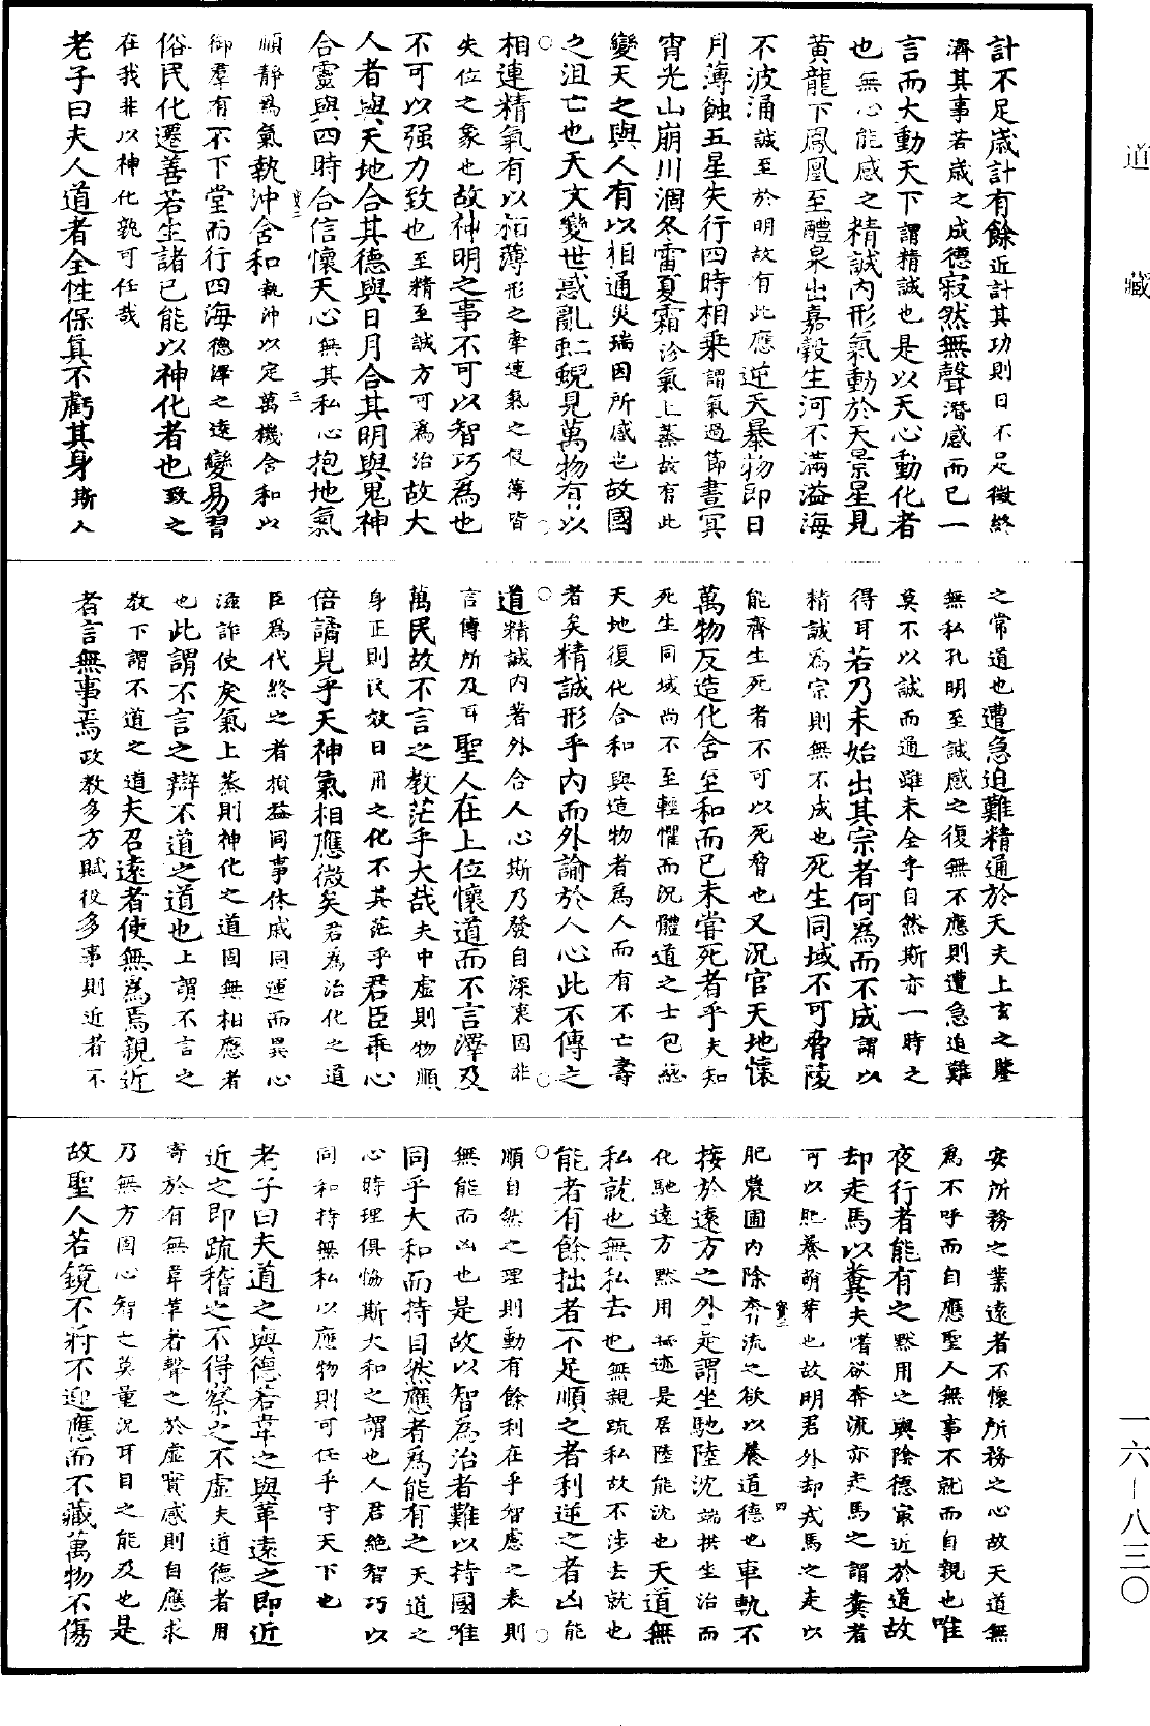 計不足歲計有餘近計其功則日不足徵終
濟其事若歲之成德寂然無聲潛感而已一
言而大動天下謂精誠也是以天心動化者
也無心能感之精誠內形氣動於天景星見
黃龍下鳳凰至醴泉出嘉穀生河不滿溢海
不波涌誠至於明故有此應逆天暴物即日
月薄蝕五星失行四時相乘謂氣過節晝冥
宵光山崩川涸冬雷夏霜沴氣上蒸故有此
變天之與人有以相通災瑞因所感也故國
之沮亡也天文變世惑亂虹蜺見萬物有以
相連精氣有以相薄形之牽連氣之侵薄皆
失位之象也故神明之事不可以智巧為也
不可以强力致也至精至誠方可為治故大
人者與天地合其德與日月合其明與鬼神
合靈與四時合信懷天心無其私心抱地氣
順靜為氣執沖含和執沖以定萬機含和以
御羣有不下堂而行四海德澤之遠變易習
俗民化遷善若生諸己能以神化者也致之
在我非以神化孰可任哉
老子曰夫人道者全性保真不虧其身斯人
之常道也遭急迫難精通於天夫上玄之鑒
無私孔明至誠感之復無不應則遭急迫難
莫不以誠而通雖未全乎自然斯亦一時之
得耳若乃未始出其宗者何為而不成謂以
精誠為宗則無不成也死生同域不可脅陵
能齊生死者不可以死脅也又況官天地懷
萬物反造化含至和而已未嘗死者乎夫知
死生同域尚不至輕懼而況體道之士包總
天地復化合和與造物者為人而有不亡壽
者矣精誠形乎內而外諭於人心此不傳之
道精誠內著外合人心斯乃發自深衷固非
言傳所及耳聖人在上位懷道而不言澤及
萬民故不言之教茫乎大哉夫中虛則物順
身正則民效日用之化不其茫乎君臣乖心
倍譎見乎天神氣相應微矣君為治化之道
臣為代終之者損益同事休戚同運而異心
滋詐使戾氣上蒸則神化之道固無相應者
也此謂不言之辯不道之道也上謂不言之
教下謂不道之道夫召遠者使無為焉親近
者言無事焉政教多方賦役多事則近者不
安所務之業遠者不懷所務之心故天道無
為不呼而自應聖人無事不就而自親也唯
夜行者能有之默用之與陰德冥近於道故
却走馬以糞夫嗜欲奔流亦走馬之謂糞者
可以肥養萌芽也故明君外却戎馬之走以
肥農圃內除奔流之欲以養道德也車軌不
接於遠方之外是謂坐馳陸沈端拱坐治而
化馳遠方默用無迹是居陸能沈也天道無
私就也無私去也無親疏私故不涉去就也
能者有餘拙者不足順之者利逆之者凶能
順自然之理則動有餘利在乎智慮之表則
無能而凶也是故以智為治者難以持國唯
同乎大和而持自然應者為能有之天道之
心時理俱恊斯大和之謂也人君絶智巧以
同和持無私以應物則可任乎守天下也
老子曰夫道之與德若韋之與革遠之即近
近之即疏稽之不得察之不虛夫道德者用
寄於有無韋革者聲之於虛實感則自應求
乃無方固心智之莫量況耳目之能及也是
故聖人若鏡不將不迎應而不藏萬物不傷
道藏
一六－八三〇